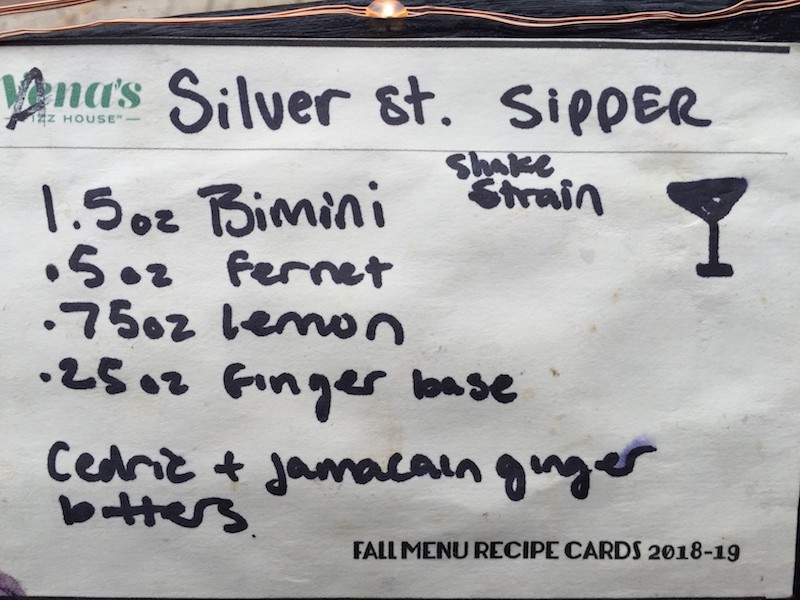 Vena's
FIZZ HOUSE™
Silver St. SIPPER
Shake
Strain
1.5oz Bimini
.5oz Fernet
.75oz lemon
.25oz Finger base
Cedric + Jamacain ginger
bitters.
FALL MENU RECIPE CARDS 2018-19